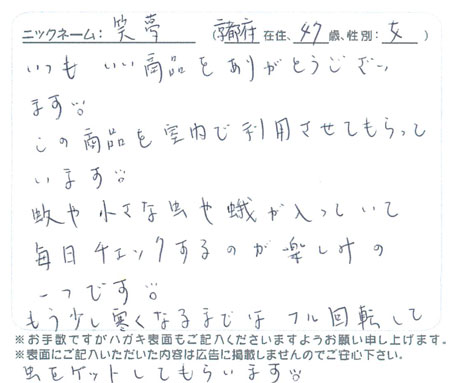 ニックネーム: 笑夢 (京都府 在住、47 歳、性別: 女 )
いつも いい商品をありがとうござい
ます。
この商品を室内で利用させてもらって
います。
蚊や小さな虫や蛾が入っていて
毎日チェックするのが楽しみの
一つです。
もう少し寒くなるまでは フル回転して
※お手数ですがハガキ表面もご記入くださいますようお願い申し上げます。
※表面にご記入いただいた内容は広告に掲載しませんのでご安心下さい。
虫をゲットしてもらいます。